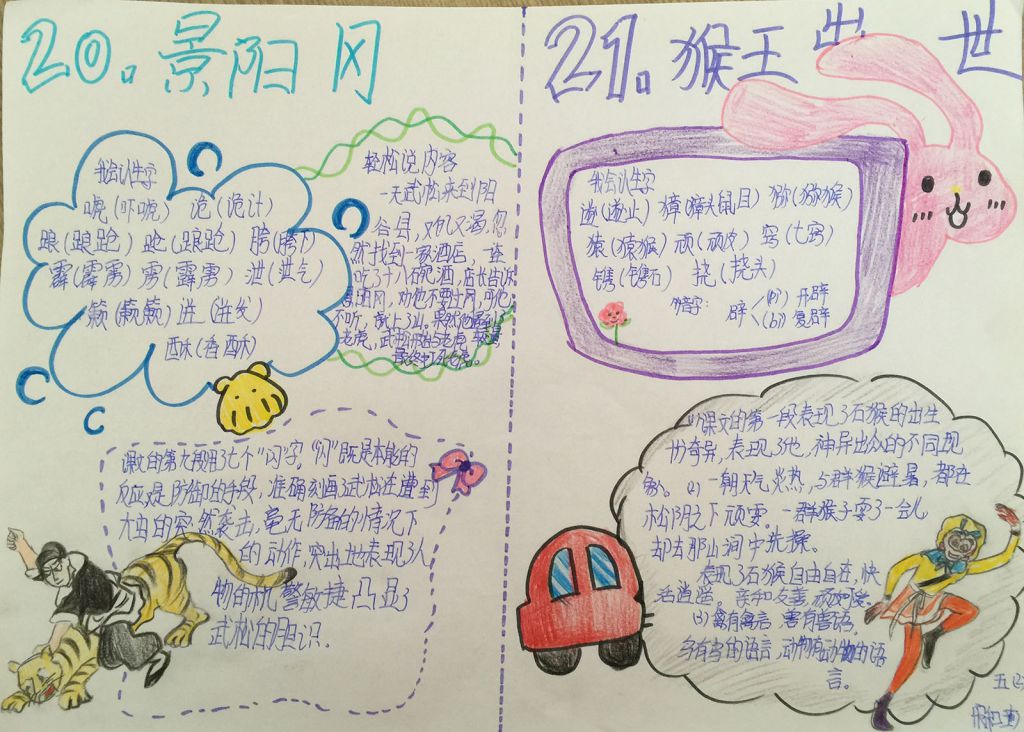 20.景阳冈
我会认生字
唬(吓唬) 诡(诡计)
踉(踉跄) 跄(踉跄) 胯(胯下)
霹(霹雳) 雳(霹雳) 泄(泄气)
簌(簌簌) 迸(迸发)
酥(香酥)
轻松说内容
一天武松来到阳
谷县,又饥又渴,忽
然找到一家酒店,连
吃了十八碗酒,店长告诉
冈,劝他不要上冈,可他
不听,上了山。果然他遇到了
老虎,武松开始与老虎
最终打死老虎。
课文的第九段用了七个“闪”字。“闪”既是本能的
反应是防御的手段,准确刻画了武松在遭到
大虫的突然袭击,毫无防备的情况下
的动作,突出地表现了人
物的机警敏捷凸显了
武松的胆识。
21.猴王出世
我会认生字
遂(遂止) 獐(獐头鼠目) 猕(猕猴)
猿(猿猴) 顽(顽皮) 窍(七窍)
镌(镌石) 挠(挠头)
多音字: 辟 (pì) 开辟
(bì) 复辟
(1)课文的第一段表现了石猴的出生
的奇异,表现了他,神异出众的不同现
象。(2)一朝天气炎热,与群猴避暑,都在
松阴之下顽耍。一群猴子耍了一会儿
却去那山涧中洗澡。
表现了石猴自由自在,快
活逍遥。亲和友善,顽皮
(3)禽有禽言,兽有兽语。
鸟有鸟的语言,动物有动物的语
言。
五(2)